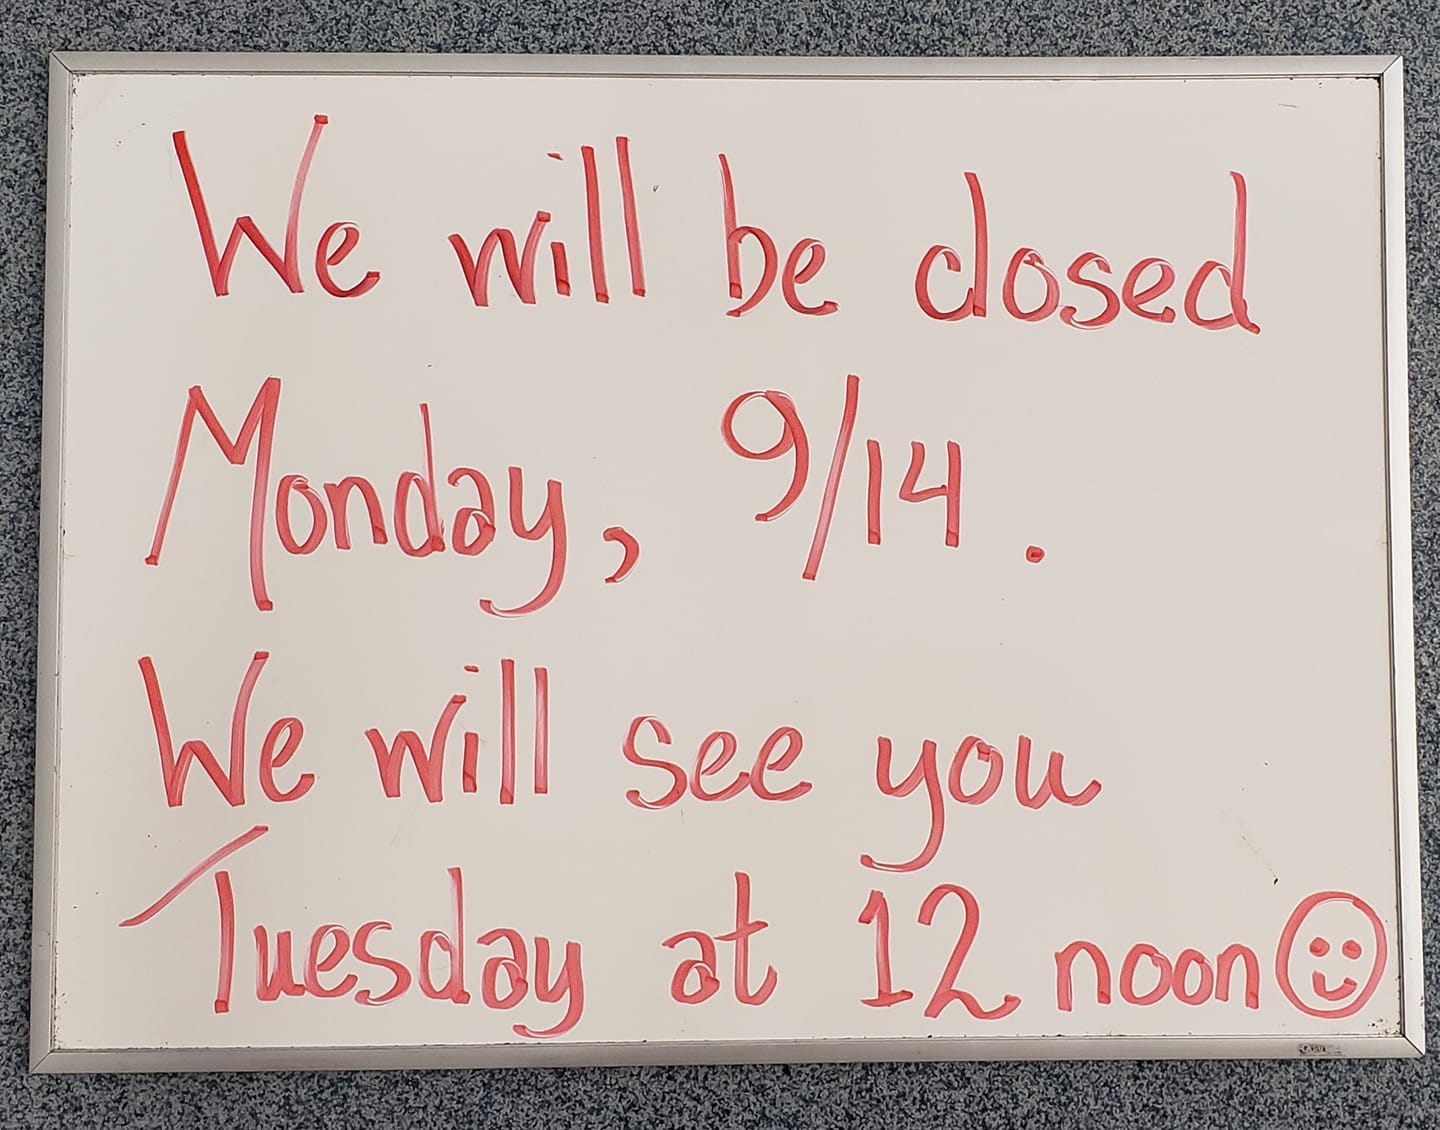 We will be closed
Monday, 9/14.
We will see you
Tuesday at 12 noon